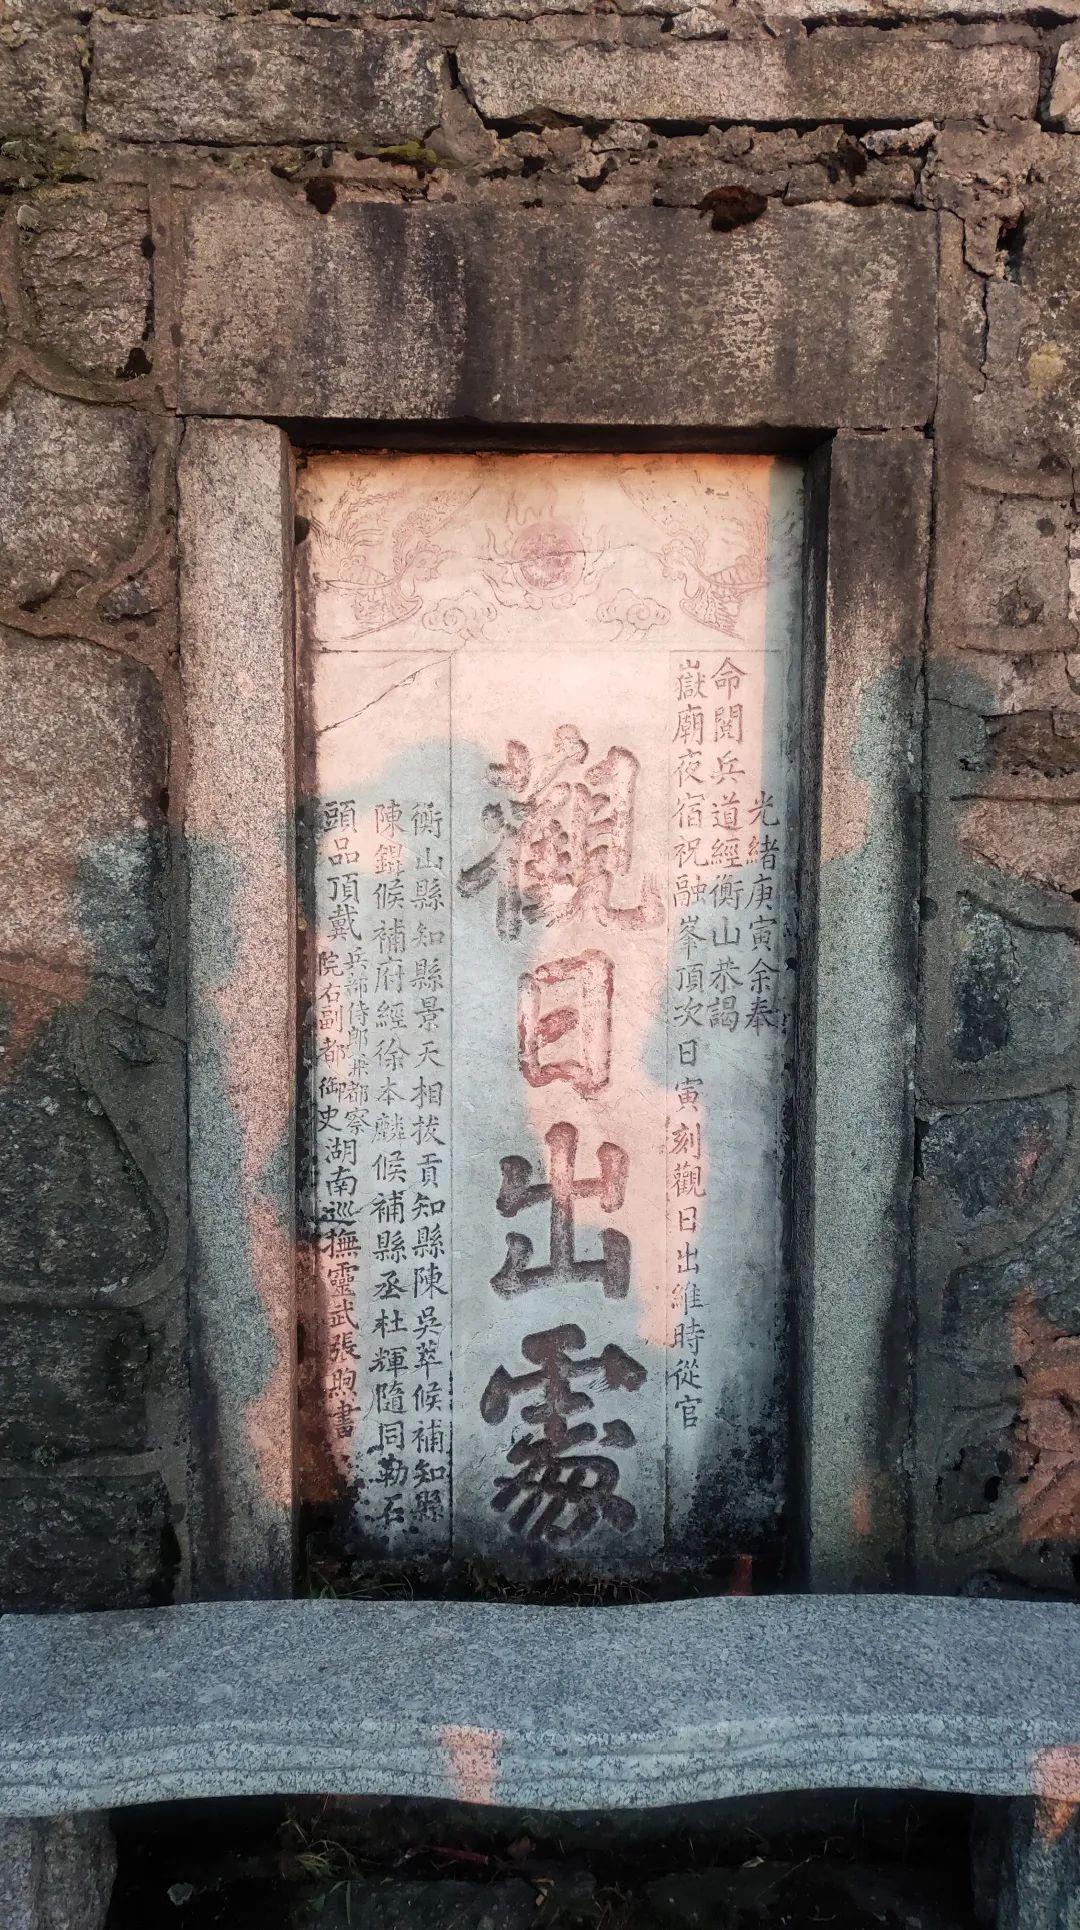 光緒庚寅余奉
命閱兵道經衡山恭謁
嶽廟夜宿祝融峯頂次日寅刻觀日出維時從官
觀日出處
衡山縣知縣景天相拔貢知縣陳吳萃候補知縣
陳錕候補府經徐本麟候補縣丞杜輝隨同勒石
頭品頂戴兵部侍郎兼都察院右副都御史湖南巡撫靈武張煦書